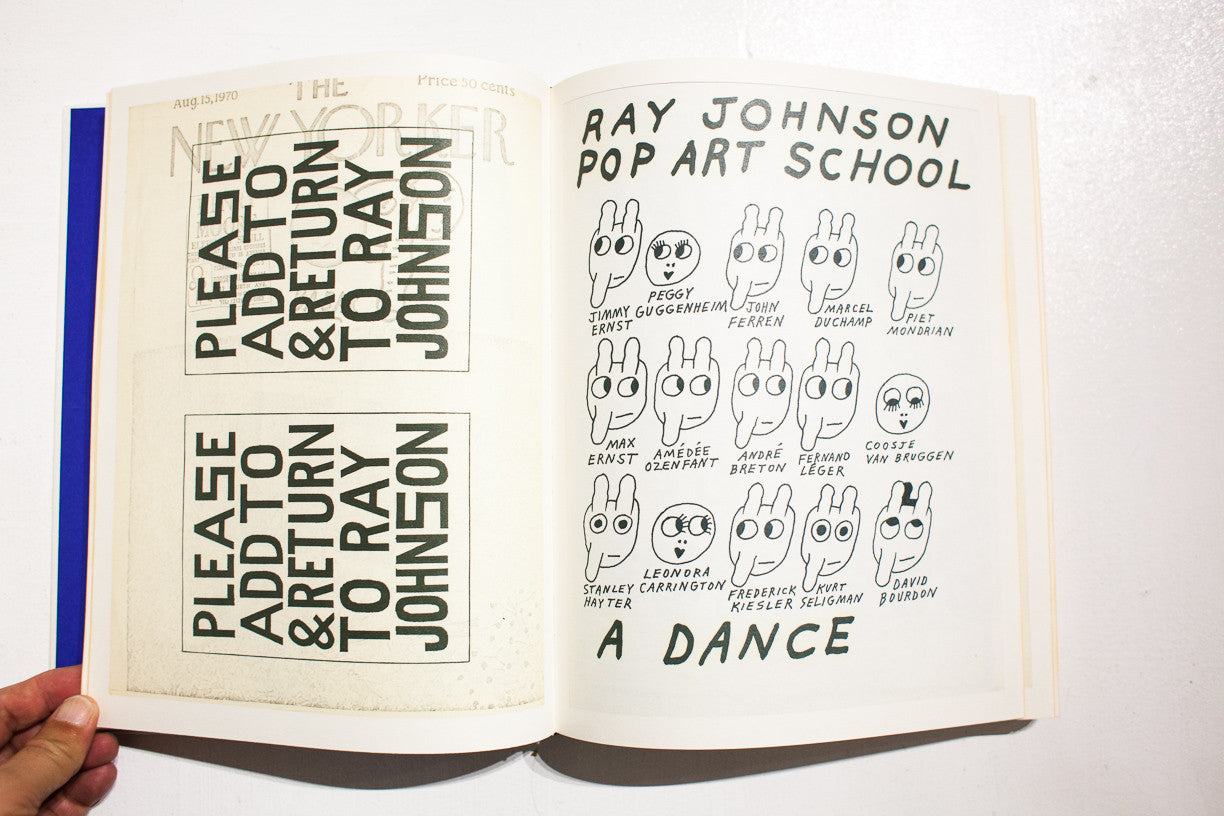 Aug.15,1970
THE
Price 50 cents
NEW YORKER
PLEASE
ADD TO
&RETURN
TO RAY
JOHNSON
PLEASE
ADD TO
&RETURN
TO RAY
JOHNSON
RAY JOHNSON
POP ART SCHOOL
JIMMY
ERNST
PEGGY
GUGGENHEIM
JOHN
FERREN
MARCEL
DUCHAMP
PIET
MONDRIAN
MAX
ERNST
AMÉDÉE
OZENFANT
ANDRÉ
BRETON
FERNAND
LÉGER
COOSJE
VAN BRUGGEN
STANLEY
HAYTER
LEONORA
CARRINGTON
FREDERICK
KIESLER
KURT
SELIGMAN
DAVID
BOURDON
A DANCE